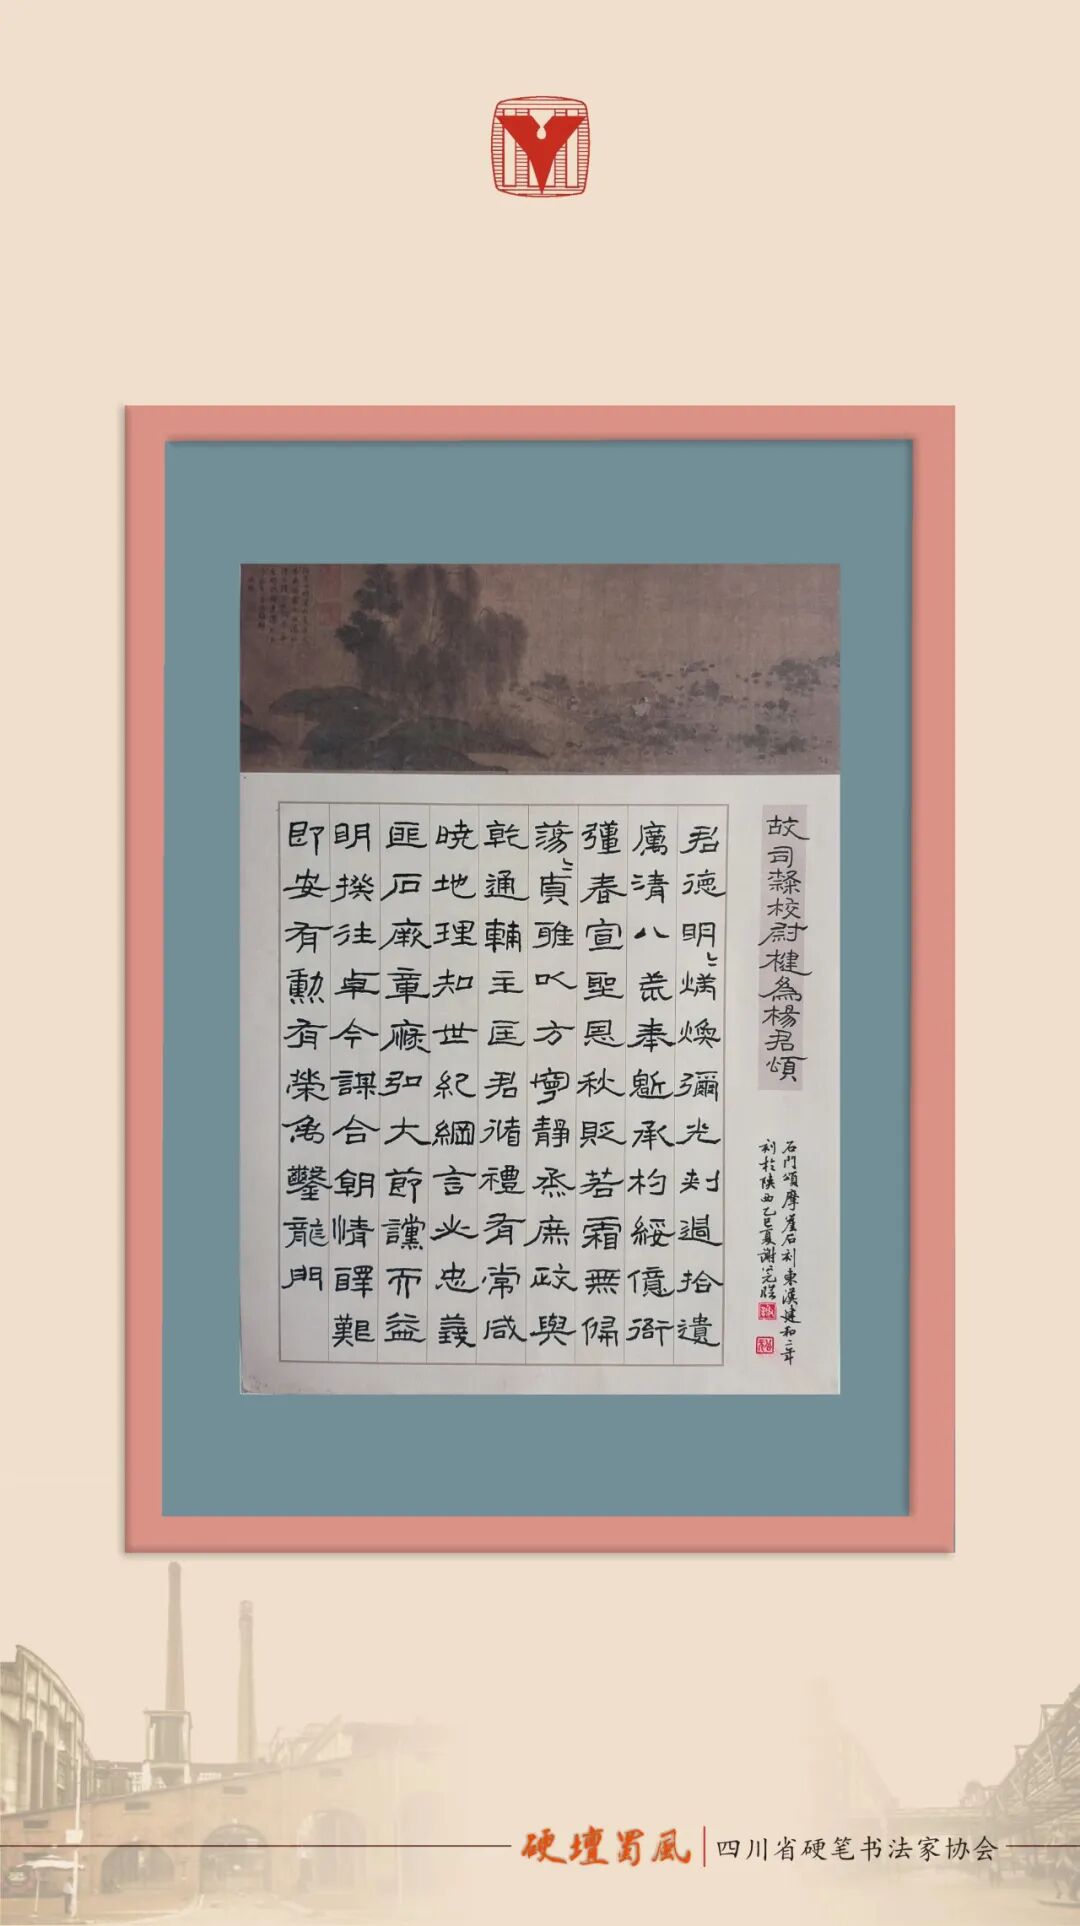 故司隸校尉楗為楊君頌
君德明〻炳煥彌光刺過拾遺
厲清八荒奉魁承杓綏億衙
彊春宣聖恩秋貶若霜無偏
蕩〻貞雅以方寧靜烝庶政與
乾通輔主匡君循禮有常咸
曉地理知世紀綱言必忠義
匪石厥章恢弘大節讜而益
明揆往卓今謀合朝情醳艱
即安有勳有榮禹鑿龍門
石門頌摩崖石刻東漢建和二年
刻於陝西乙巳夏謝
硬壇蜀風
四川省硬笔书法家协会